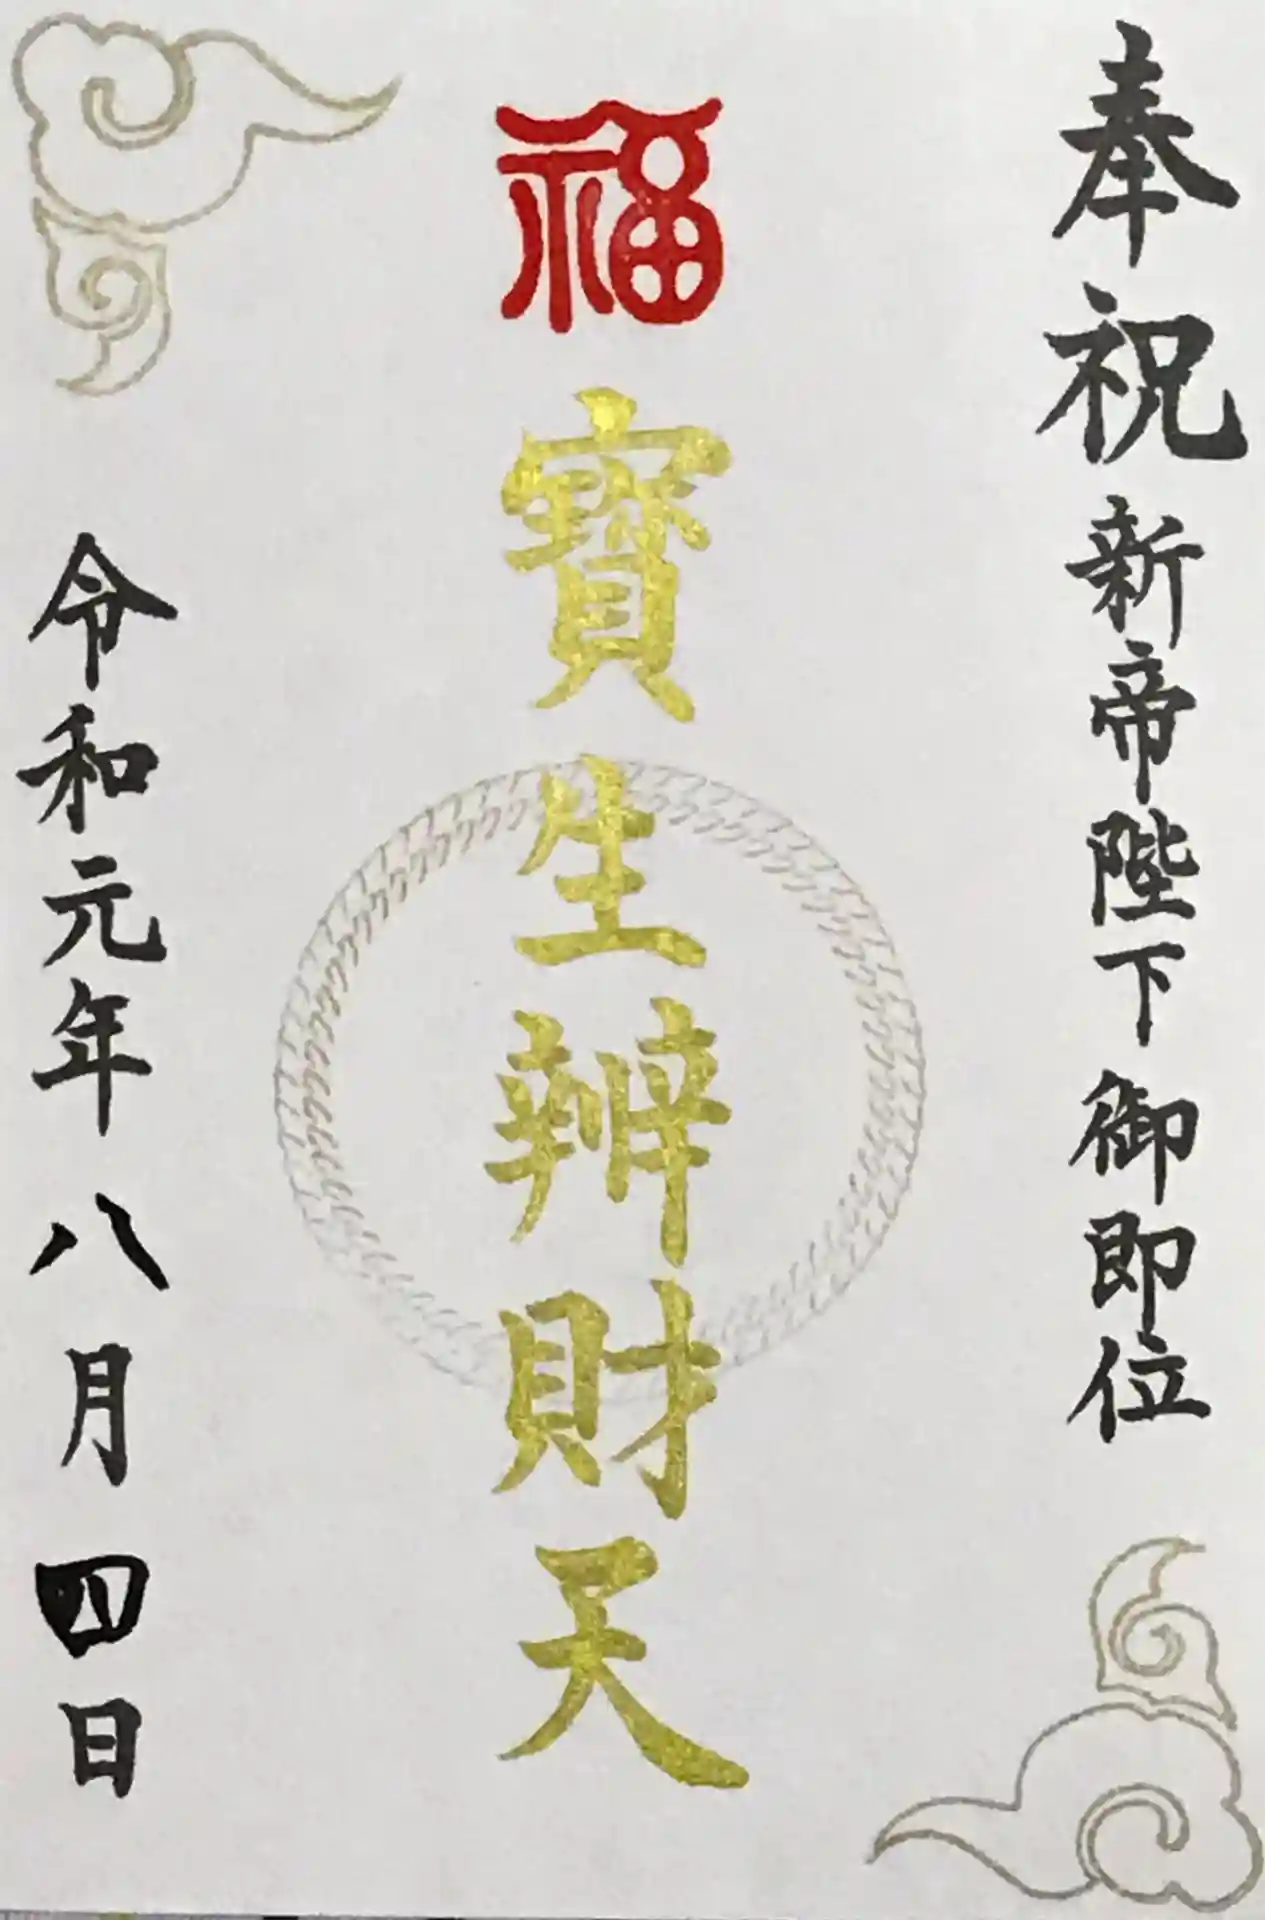 奉祝新帝陛下御即位
福
寶生辨財天
令和元年八月四日